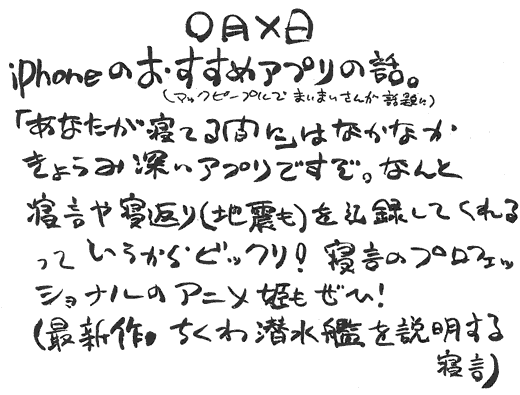 〇月×日
iPhoneのおすすめアプリの話。
(マックピープルでまいまいさんが話題に)
「あなたが寝てる間に」はなかなか
きょうみ深いアプリですぞ。なんと
寝言や寝返り(地震も)を記録してくれる
っていうからビックリ!寝言のプロフェッ
ショナルのアニメ姫もぜひ!
(最新作。ちくわ潜水艦を説明する
寝言)